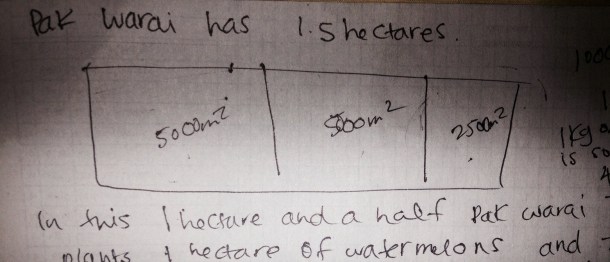 Pak Warai has 1.5 hectares.
5000m² 5000m² 2500m²
1kg
is
In this 1 hectare and a half Pak Warai
plants hectare of watermelons and